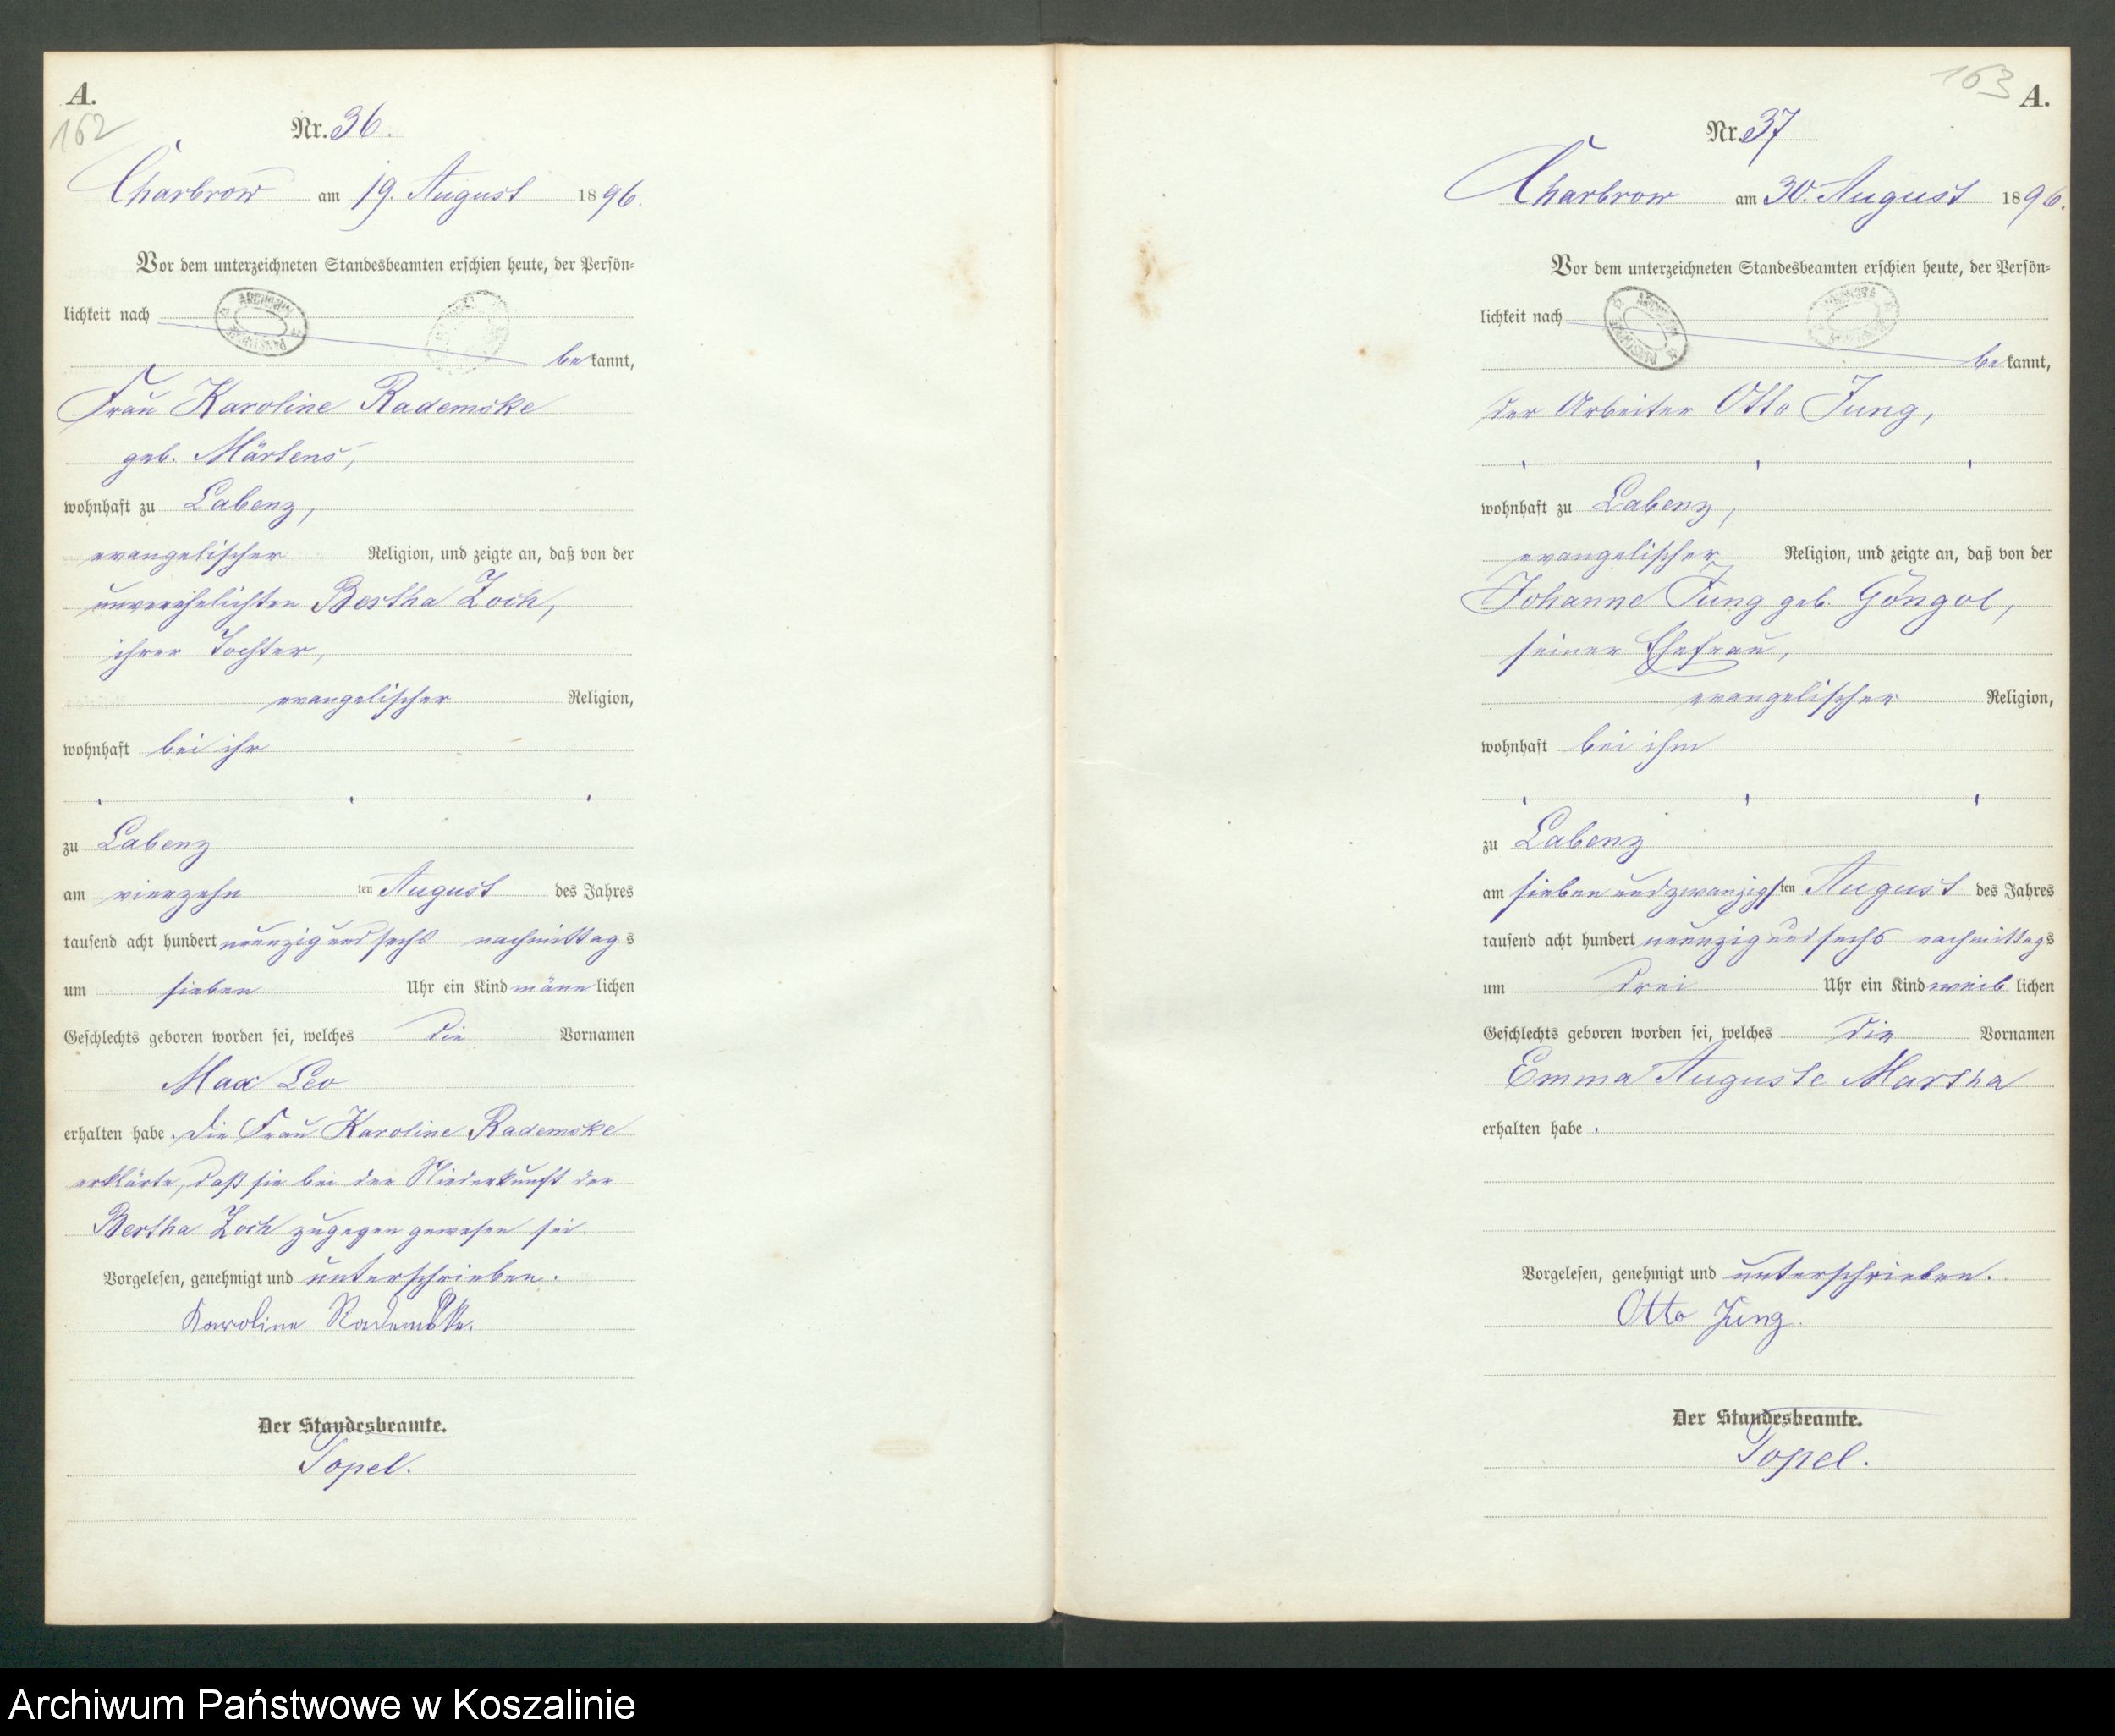 A.
162
Nr. 36.
Charbrow am 19. August 1896.
Vor dem unterzeichneten Standesbeamten erschien heute, der Persön-
lichkeit nach
bekannt,
Frau Karoline Rademske
geb. Märtens,
wohnhaft zu Labenz,
evangelischer Religion, und zeigte an, daß von der
unverehelichten Bertha Zoch,
ihrer Tochter,
evangelischer Religion,
wohnhaft bei ihr
zu Labenz
am vierzehn ten August des Jahres
tausend acht hundert neunzig und sechs nachmittags
um sieben Uhr ein Kind männlichen
Geschlechts geboren worden sei, welches die Vornamen
Max Leo
erhalten habe. Die Frau Karoline Rademske
erklärte, daß sie bei der Niederkunft der
Bertha Zoch zugegen gewesen sei.
Vorgelesen, genehmigt und unterschrieben.
Karoline Rademske.
Der Standesbeamte.
Topel.
163
A.
Nr. 37
Charbrow am 30. August 1896.
Vor dem unterzeichneten Standesbeamten erschien heute, der Persön-
lichkeit nach
bekannt,
der Arbeiter Otto Jung,
wohnhaft zu Labenz,
evangelischer Religion, und zeigte an, daß von der
Johanne Jung geb. Göngol,
seiner Ehefrau,
evangelischer Religion,
wohnhaft bei ihm
zu Labenz
am sieben und zwanzigsten August des Jahres
tausend acht hundert neunzig und sechs nachmittags
um drei Uhr ein Kind weiblichen
Geschlechts geboren worden sei, welches die Vornamen
Emma Auguste Martha
erhalten habe.
Vorgelesen, genehmigt und unterschrieben.
Otto Jung.
Der Standesbeamte.
Topel.
Archiwum Państwowe w Koszalinie